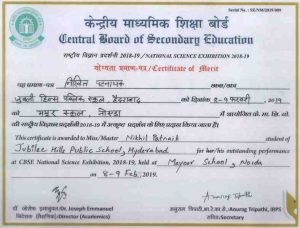 Serial No. : SE/NM/2019/009
केन्द्रीय माध्यमिक शिक्षा बोर्ड
Central Board of Secondary Education
राष्ट्रीय विज्ञान प्रदर्शनी 2018-19 / NATIONAL SCIENCE EXHIBITION 2018-19
योग्यता प्रमाण-पत्र/Certificate of Merit
यह प्रमाण-पत्र निखिल पटनायक
जुबली हिल्स पब्लिक स्कूल, हैदराबाद को दिनांक 8-9 फरवरी, 2019
को मयूर स्कूल, नोएडा में आयोजित के.मा.शि.बो.
की राष्ट्रीय विज्ञान प्रदर्शनी 2018-19 में उत्कृष्ट प्रदर्शन के लिए प्रदान किया जाता है।
This certificate is awarded to Miss/Master Nikhil Patnaik student of
Jubilee Hills Public School, Hyderabad for her/his outstanding performance
at CBSE National Science Exhibition, 2018-19, held at Mayoor School, Noida
on 8-9 Feb, 2019.
डॉ. जोसफ इमानुवल/Dr. Joseph Emmanuel
निदेशक (शैक्षणिक)/Director (Academics)
अनुराग त्रिपाठी, आई.आर.पी.एस./Anurag Tripathi, IRPS
सचिव/Secretary